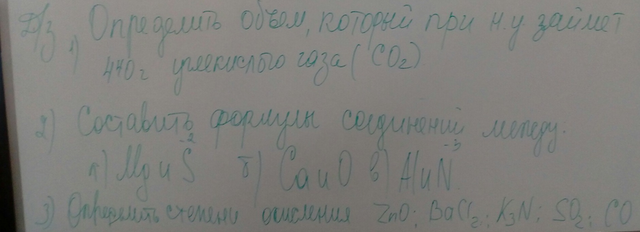 Д/з Определить объем, который при н.у займет
1) 440г углекислого газа (CO2)
2) Составить формулы соединений между.
а) Mg и S -2 б) Ca и O в) Al и N -3
3) Определить степени окисления ZnO; BaCl2; K3N; SO2; CO